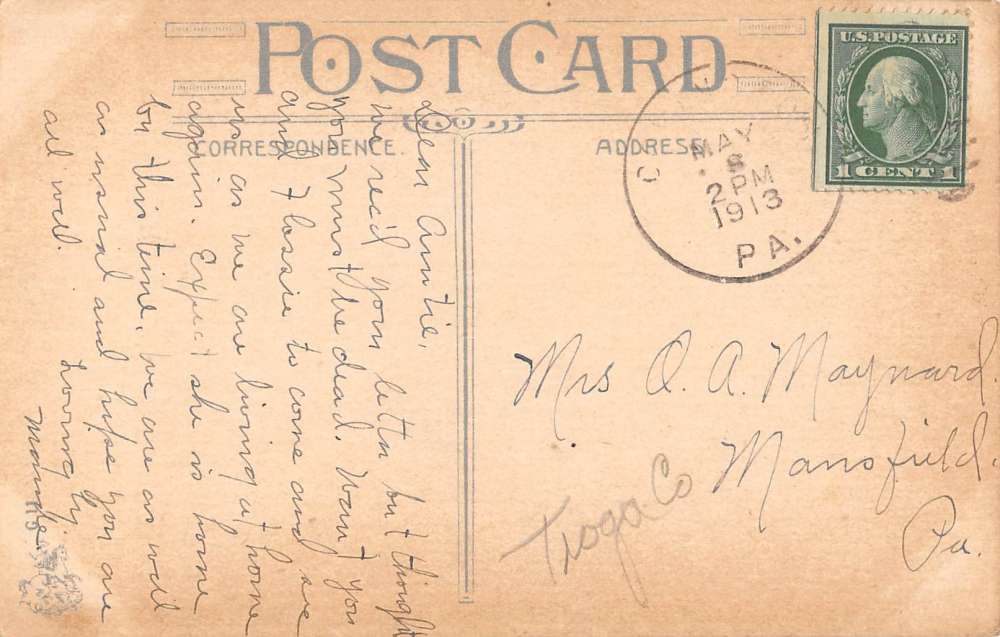 POST CARD
CORRESPONDENCE.
ADDRESS
U.S. POSTAGE
1 CENT 1
MAY
8
2 PM
1913
PA.
Dear Auntie,
We rec'd your letter but thought
you must be dead. Want you
and Flossie to come and see
us as we are living at home
again. Expect she is home
by this time. We are as well
as usual and hope you are
all well.
Lovingly
Mrs O. A. Maynard.
Mansfield.
Pa.
Tioga Co